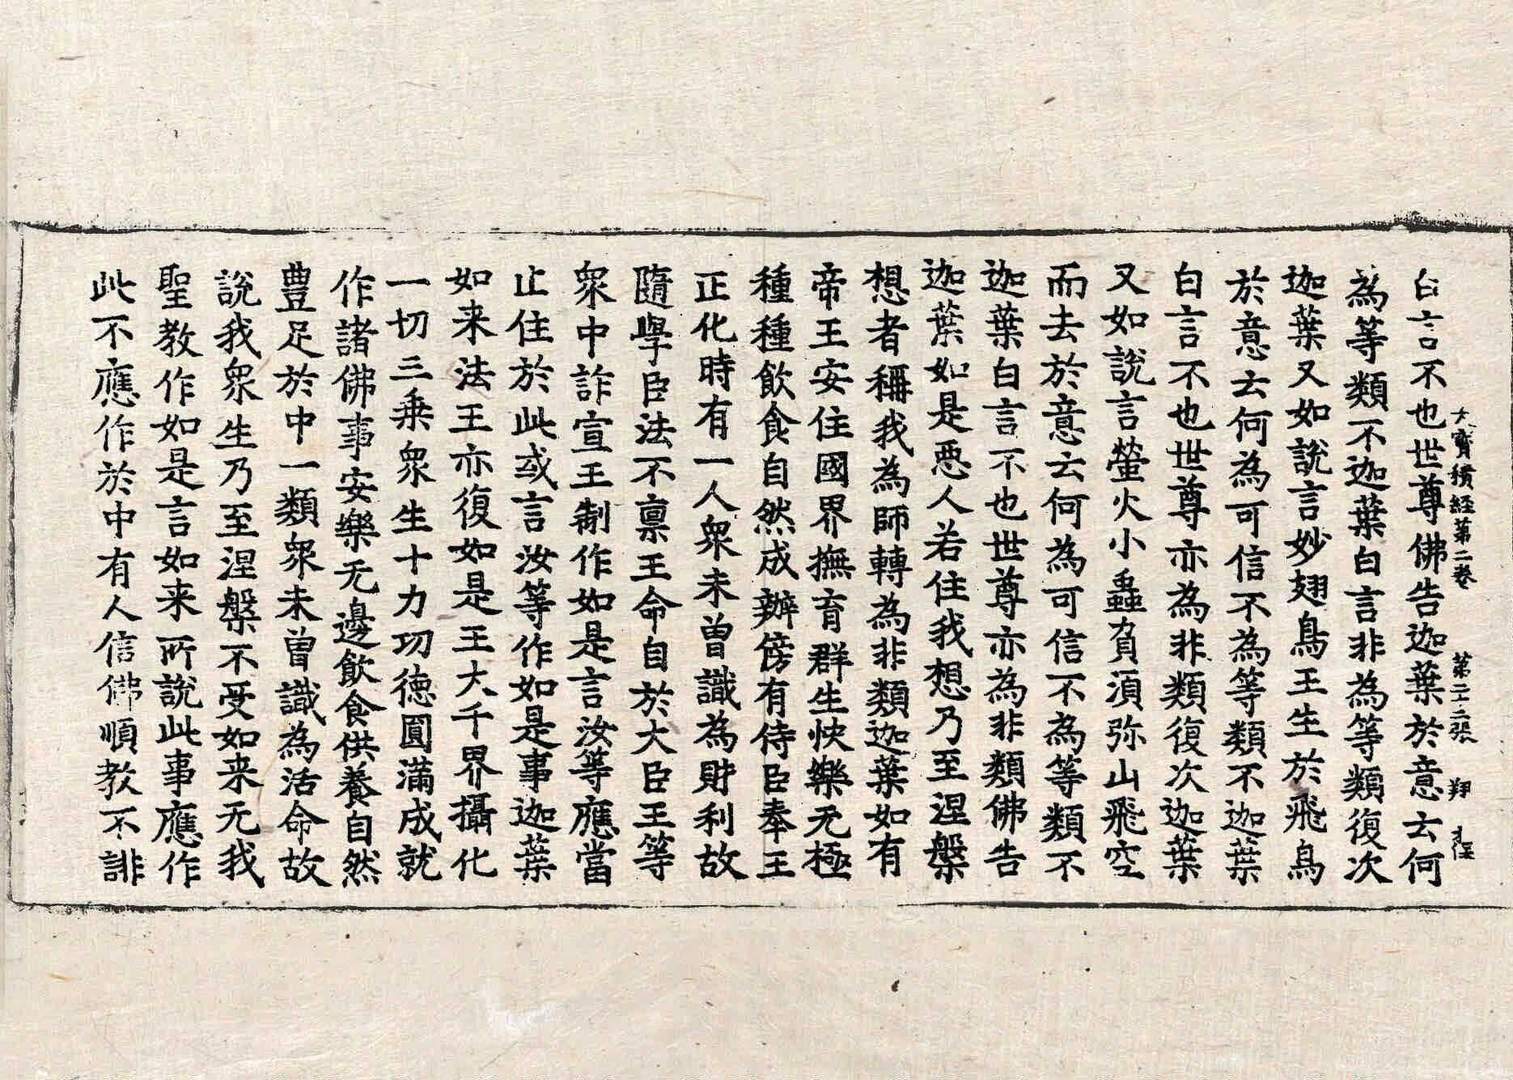 大寶積經第二卷　第二十三張　翔
白言不也世尊佛告迦葉於意云何
為等類不迦葉白言非為等類復次
迦葉又如說言妙翅鳥王生於飛鳥
於意云何為可信不為等類不迦葉
白言不也世尊亦為非類復次迦葉
又如說言螢火小蟲負湏弥山飛空
而去於意云何為可信不為等類不
迦葉白言不也世尊亦為非類佛告
迦葉如是惡人若住我想乃至涅槃
想者稱我為師轉為非類迦葉如有
帝王安住國界撫育群生快樂无極
種種飲食自然成辦傍有侍臣奉王
正化時有一人衆未曾識為財利故
隨學臣法不禀王命自於大臣王等
衆中詐宣王制作如是言汝等應當
止住於此或言汝等作如是事迦葉
如来法王亦復如是王大千界攝化
一切三乗衆生十力功德圓滿成就
作諸佛事安樂无邊飲食供養自然
豊足於中一類衆未曾識為活命故
說我衆生乃至涅槃不受如来无我
聖教作如是言如来所說此事應作
此不應作於中有人信佛順教不誹